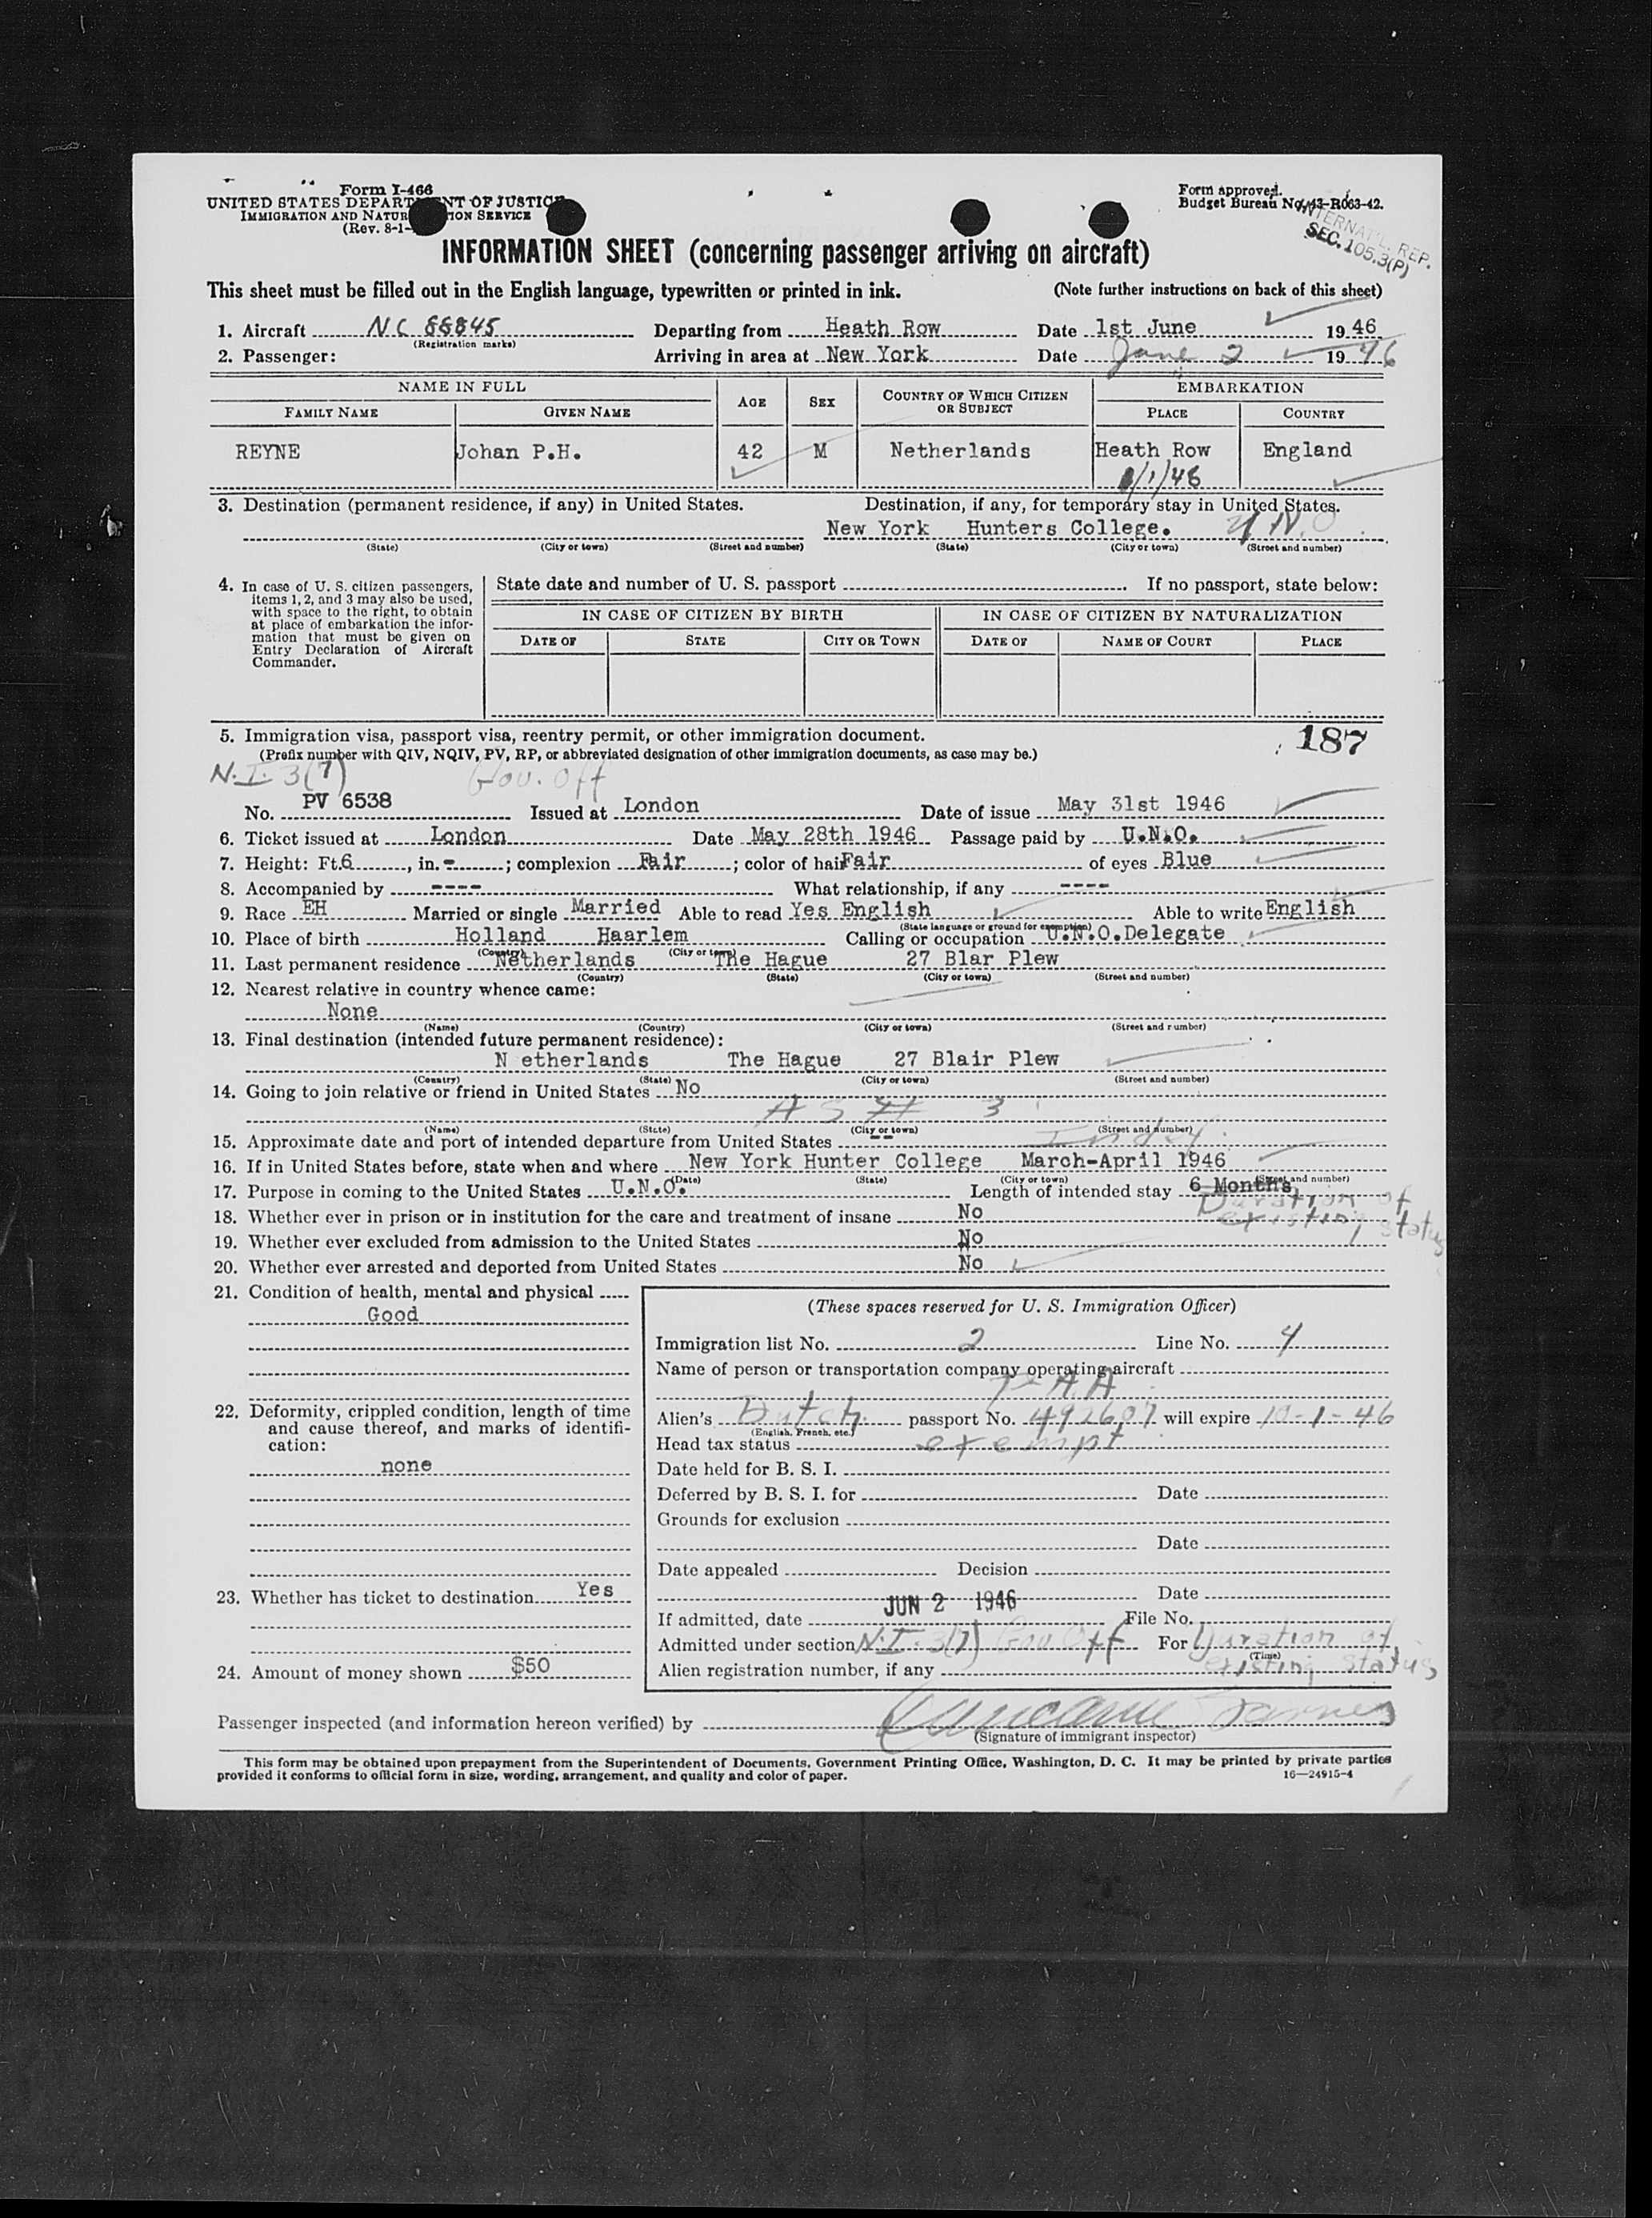 Form I-466
UNITED STATES DEPARTMENT OF JUSTICE
IMMIGRATION AND NATURALIZATION SERVICE
(Rev. 8-1-
Form approved.
Budget Bureau No. 43-R063-42.
INTERNAT'L. REP.
SEC. 105.3(P)
INFORMATION SHEET (concerning passenger arriving on aircraft)
This sheet must be filled out in the English language, typewritten or printed in ink. (Note further instructions on back of this sheet)
1. Aircraft NC 88845 Departing from Heath Row Date 1st June 1946
(Registration marks)
2. Passenger: Arriving in area at New York Date June 2 1946
NAME IN FULL
FAMILY NAME GIVEN NAME AGE SEX COUNTRY OF WHICH CITIZEN OR SUBJECT EMBARKATION PLACE COUNTRY
REYNE Johan P.H. 42 M Netherlands Heath Row England
3. Destination (permanent residence, if any) in United States. Destination, if any, for temporary stay in United States.
New York Hunters College. U.N.O
(State) (City or town) (Street and number) (State) (City or town) (Street and number)
4. In case of U. S. citizen passengers, items 1, 2, and 3 may also be used, with space to the right, to obtain at place of embarkation the information that must be given on Entry Declaration of Aircraft Commander.
State date and number of U. S. passport If no passport, state below:
IN CASE OF CITIZEN BY BIRTH IN CASE OF CITIZEN BY NATURALIZATION
DATE OF STATE CITY OR TOWN DATE OF NAME OF COURT PLACE
5. Immigration visa, passport visa, reentry permit, or other immigration document. 187
(Prefix number with QIV, NQIV, PV, RP, or abbreviated designation of other immigration documents, as case may be.)
N.I. 3(7) Gov. Off
No. PV 6538 Issued at London Date of issue May 31st 1946
6. Ticket issued at London Date May 28th 1946 Passage paid by U.N.O.
7. Height: Ft. 6, in. -; complexion Fair; color of hair Fair of eyes Blue
8. Accompanied by ---- What relationship, if any ----
9. Race EH Married or single Married Able to read Yes English Able to write English
(State language or ground for exemption)
10. Place of birth Holland Haarlem Calling or occupation U.N.O.Delegate
(Country) (City or town)
11. Last permanent residence Netherlands The Hague 27 Blar Plew
(Country) (State) (City or town) (Street and number)
12. Nearest relative in country whence came:
None
(Name) (Country) (City or town) (Street and number)
13. Final destination (intended future permanent residence):
N etherlands The Hague 27 Blair Plew
(Country) (State) (City or town) (Street and number)
14. Going to join relative or friend in United States No
(Name) (State) (City or town) (Street and number)
15. Approximate date and port of intended departure from United States --
16. If in United States before, state when and where New York Hunter College March-April 1946
(Date) (State) (City or town) (Street and number)
17. Purpose in coming to the United States U.N.O. Length of intended stay 6 Months
Duration of existing status
18. Whether ever in prison or in institution for the care and treatment of insane No
19. Whether ever excluded from admission to the United States No
20. Whether ever arrested and deported from United States No
21. Condition of health, mental and physical
Good
22. Deformity, crippled condition, length of time and cause thereof, and marks of identification:
none
23. Whether has ticket to destination Yes
24. Amount of money shown $50
(These spaces reserved for U. S. Immigration Officer)
Immigration list No. 2 Line No. 4
Name of person or transportation company operating aircraft
Alien's Dutch passport No. 492607 will expire 10-1-46
(English, French, etc.)
Head tax status exempt
Date held for B. S. I.
Deferred by B. S. I. for Date
Grounds for exclusion
Date
Date appealed Decision
Date
If admitted, date JUN 2 1946 File No.
Admitted under section N.I. 3(7) Gov. Off For Duration of existing status
(Time)
Alien registration number, if any
Passenger inspected (and information hereon verified) by
(Signature of immigrant inspector)
This form may be obtained upon prepayment from the Superintendent of Documents, Government Printing Office, Washington, D. C. It may be printed by private parties
provided it conforms to official form in size, wording, arrangement, and quality and color of paper. 16—24915-4